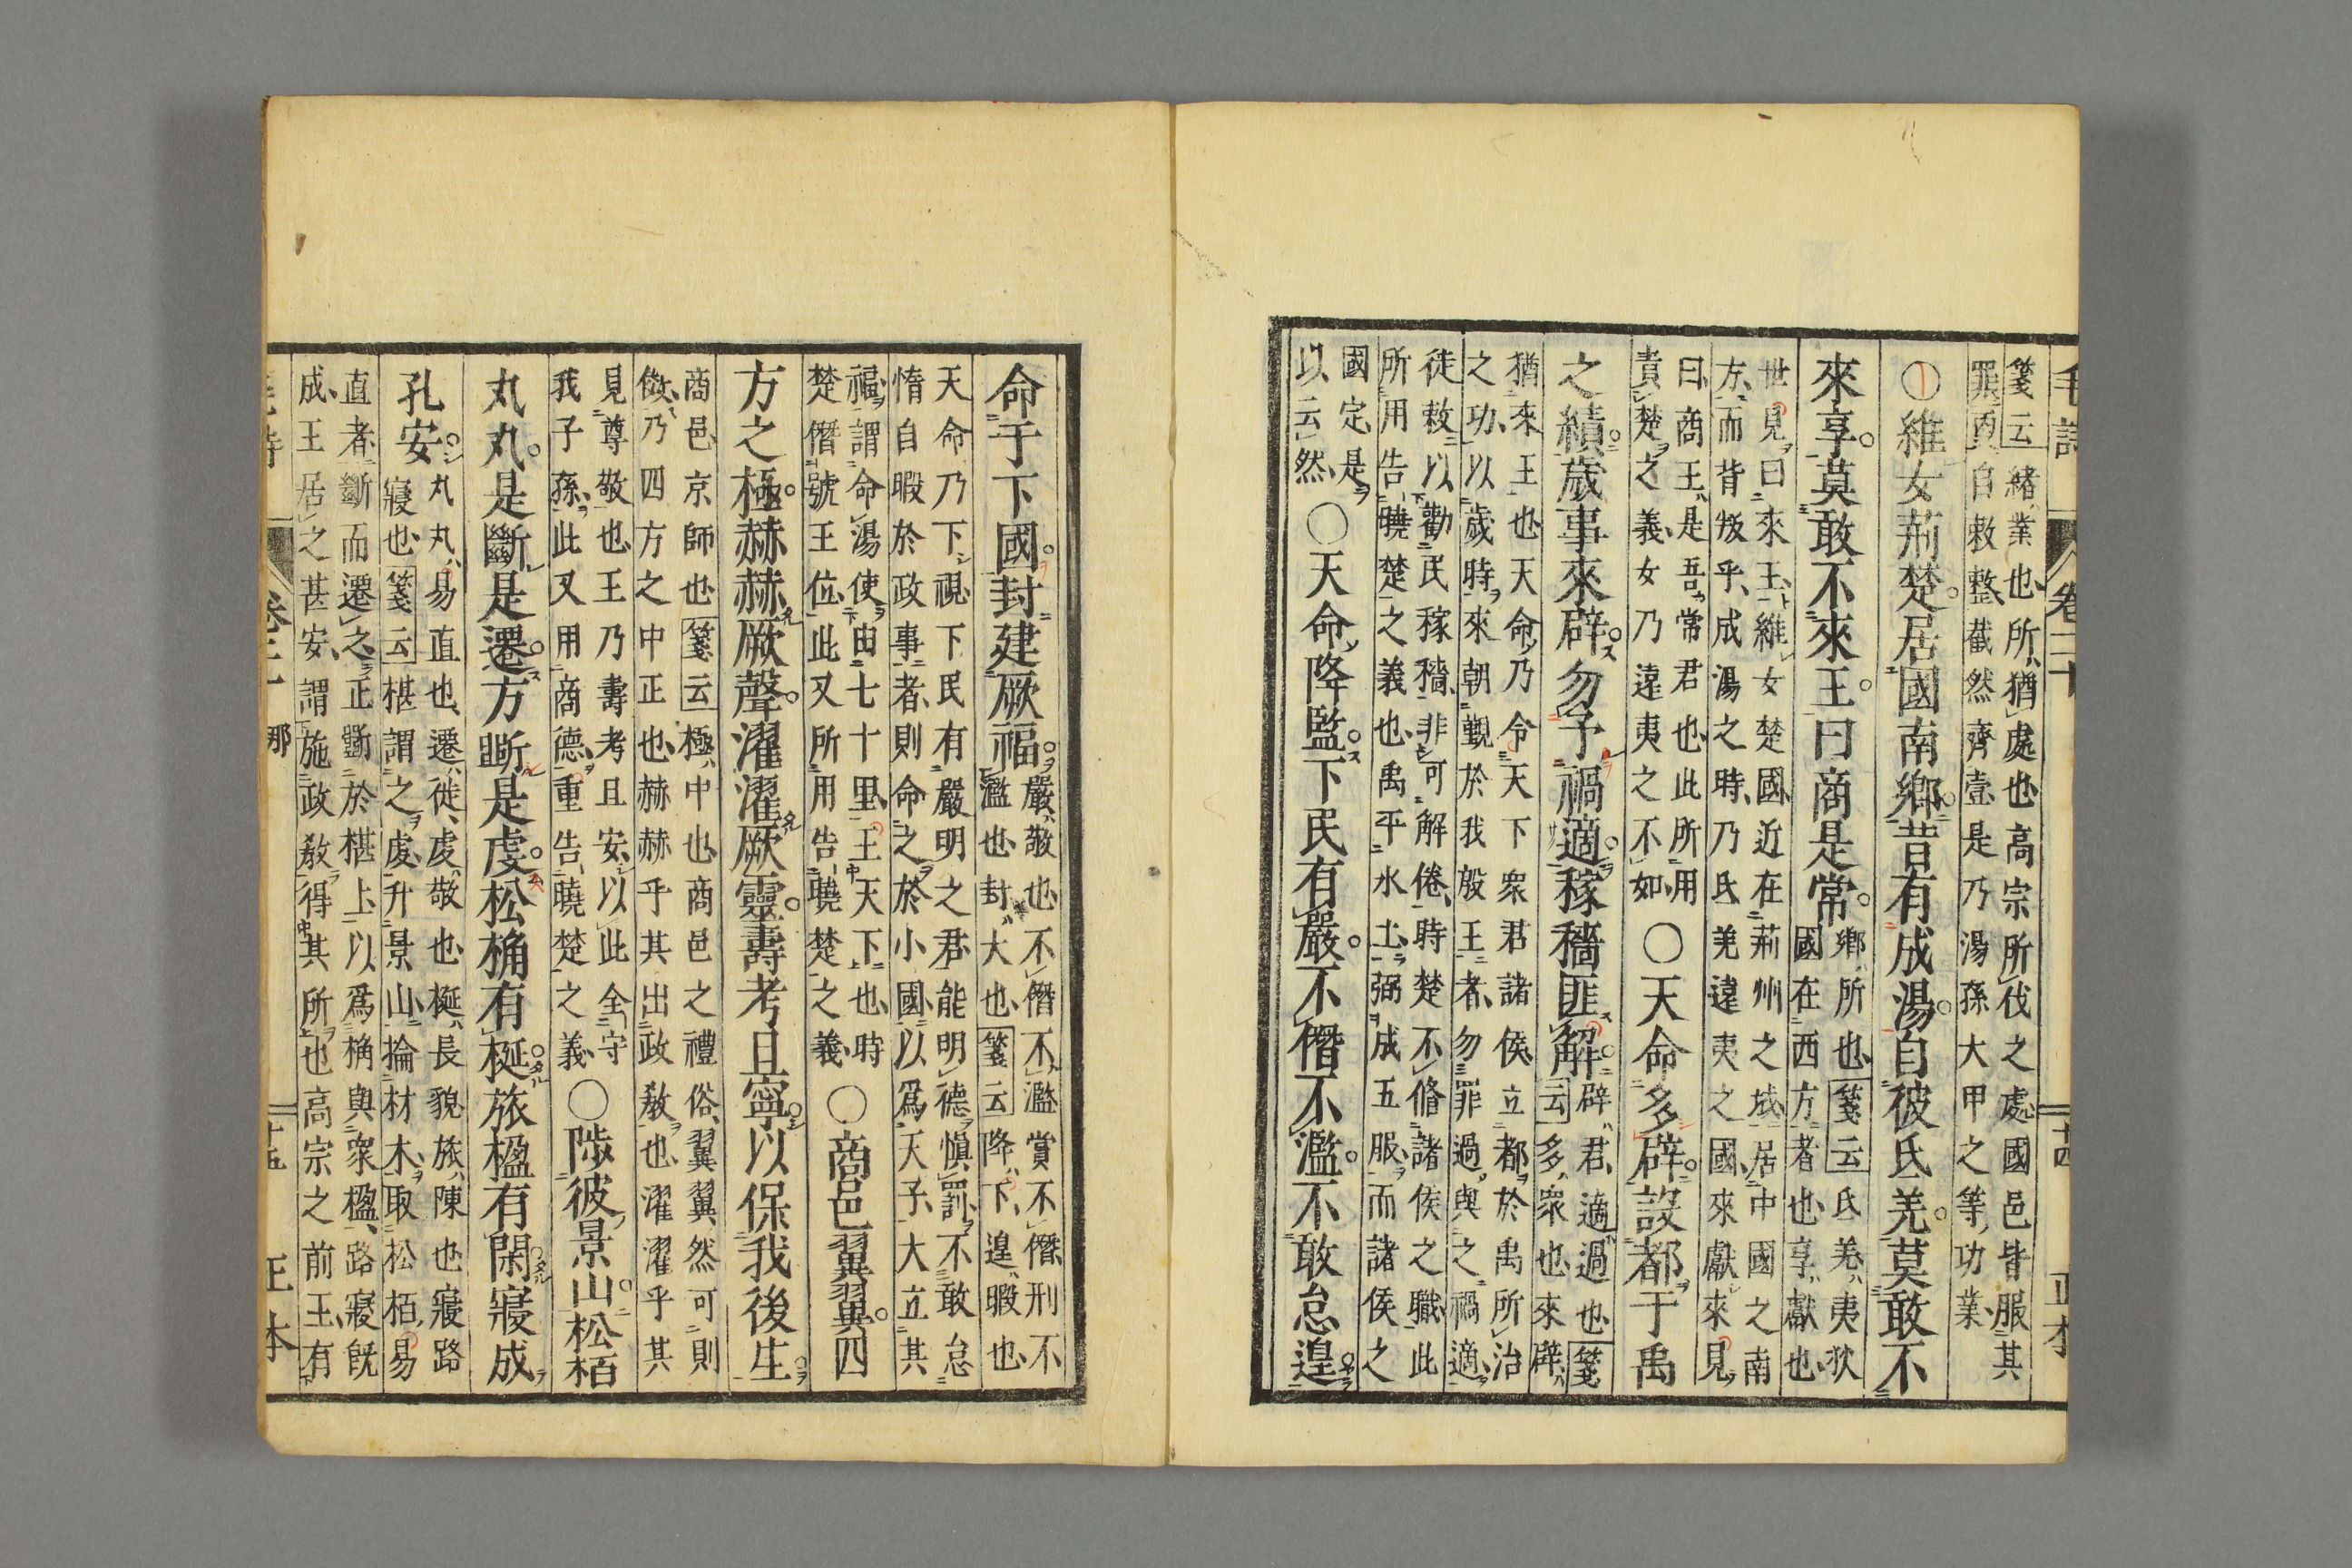 毛詩 卷二十 十四 正本
箋云緒業也所猶處也高宗所伐之處國邑皆服其
罪更自敕整截然齊壹是乃湯孫大甲之等功業
○維女荊楚居國南鄉昔有成湯自彼氐羌莫敢不
來享莫敢不來王曰商是常
鄉所也箋云氐羌夷狄
國在西方者也享獻也
世見曰來王維女楚國近在荊州之域居中國之南
方而背叛乎成湯之時乃氐羌遠夷之國來獻來見
曰商王是吾常君也此所用
責楚之義女乃遠夷之不如
○天命多辟設都于禹
之績歲事來辟勿予禍適稼穡匪解
辟君適過也箋
云多眾也來辟
猶來王也天命乃令天下眾君諸侯立都於禹所治
之功以歲時來朝覲於我殷王者勿罪過與之禍適
徒敕以勸民稼穡非可解倦時楚不脩諸侯之職此
所用告曉楚之義也禹平水土弼成五服而諸侯之
國定是
以云然
○天命降監下民有嚴不僭不濫不敢怠遑
命于下國封建厥福
嚴敬也不僭不濫賞不僭刑不
濫也封大也箋云降下遑暇也
天命乃下視下民有嚴明之君能明德慎罰不敢怠
惰自暇於政事者則命之於小國以為天子大立其
福謂命湯使由七十里王天下也時
楚僭號王位此又所用告曉楚之義
○商邑翼翼四
方之極赫赫厥聲濯濯厥靈壽考且寧以保我後生
商邑京師也箋云極中也商邑之禮俗翼翼然可則
傚乃四方之中正也赫赫乎其出政敎也濯濯乎其
見尊敬也王乃壽考且安以此全守
我子孫此又用商德重告曉楚之義
○陟彼景山松栢
丸丸是斷是遷方斲是虔松桷有梴旅楹有閑寢成
孔安
丸丸易直也遷徙虔敬也梴長貌旅陳也寢路
寢也箋云椹謂之虔升景山掄材木取松栢易
直者斷而遷之正斲於椹上以為桷與眾楹路寢既
成王居之甚安謂施政敎得其所也高宗之前王有
毛詩 卷二十 那 十五 正本